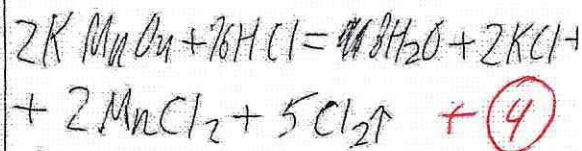 2KMnO4+16HCl=8H2O+2KCl+
+ 2MnCl2 + 5Cl2↑ + 4